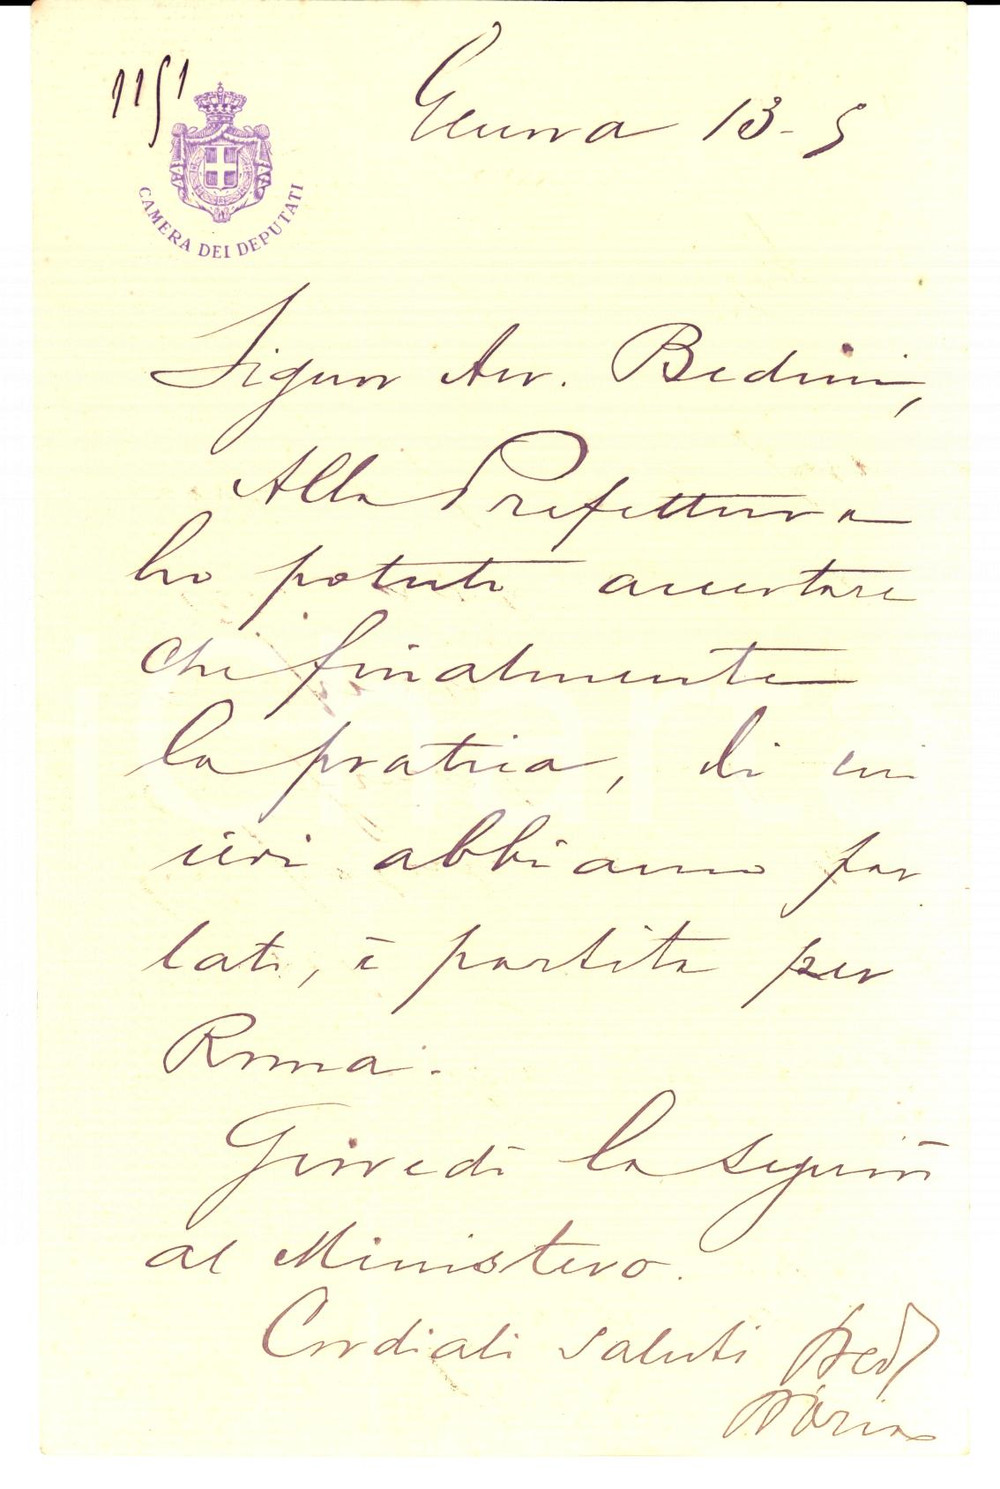 1151
CAMERA DEI DEPUTATI
Genova 13-5
Signor Avv. Bedini,
Alla Prefettura
ho potuto accertare
che finalmente
la pratica, di cui
ieri abbiamo par
lato, è partita per
Roma.
Giovedì la seguirò
al Ministero.
Cordiali saluti